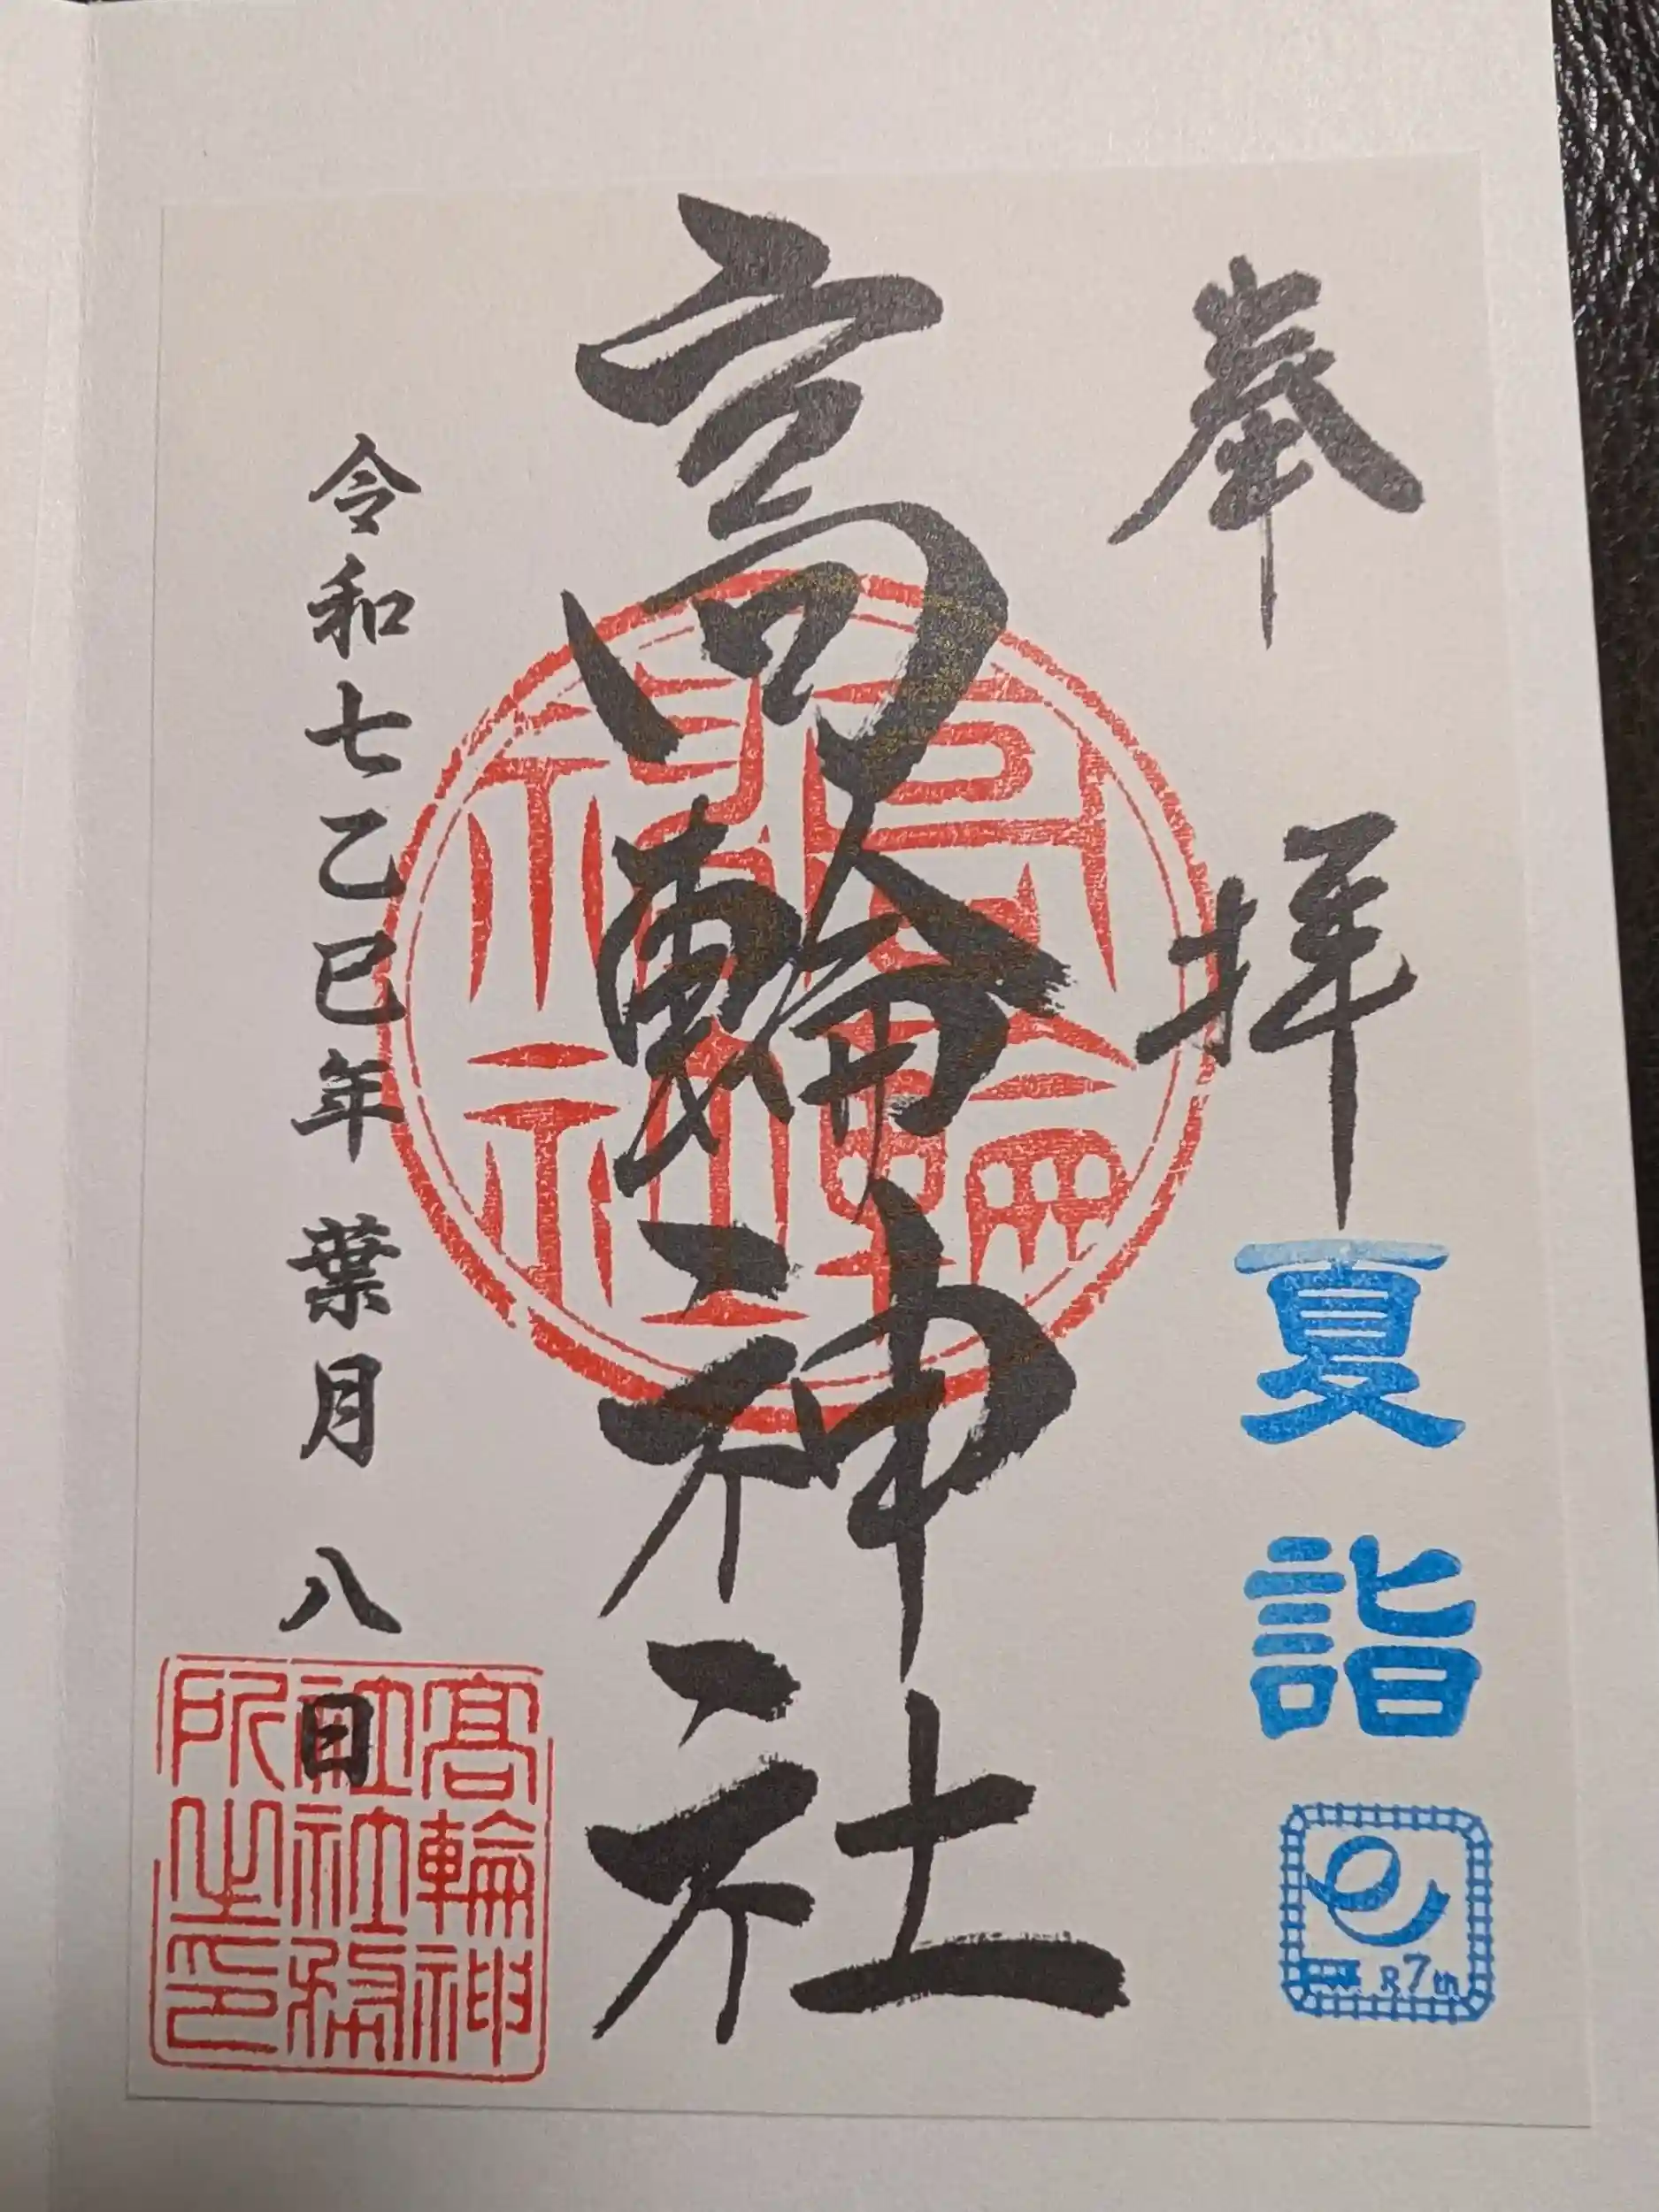 奉拝
夏詣
R7th
高輪神社
高輪神社
令和七乙巳年 葉月 八日
高輪神
社社務
所之印